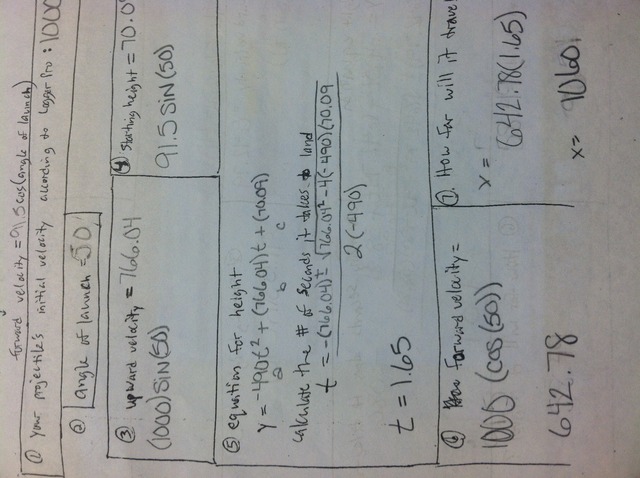 forward velocity = 91.5 cos(angle of launch)
① your projectile's initial velocity according to Logger Pro: 1000
② angle of launch = 50
③ upward velocity = 766.04
(1000) SIN(50)
④ Starting height = 70.0
91.5 SIN(50)
⑤ equation for height
y = -490t² + (766.04)t + (70.09)
a b c
calculate the # of seconds it takes to land
t = -(766.04) ± √766.04² - 4(-490)(70.09
2(-490)
t = 1.65
⑥ forward velocity =
1000 (cos(50))
642.78
⑦. How far will it travel
x = 642.78(1.65)
x = 1060